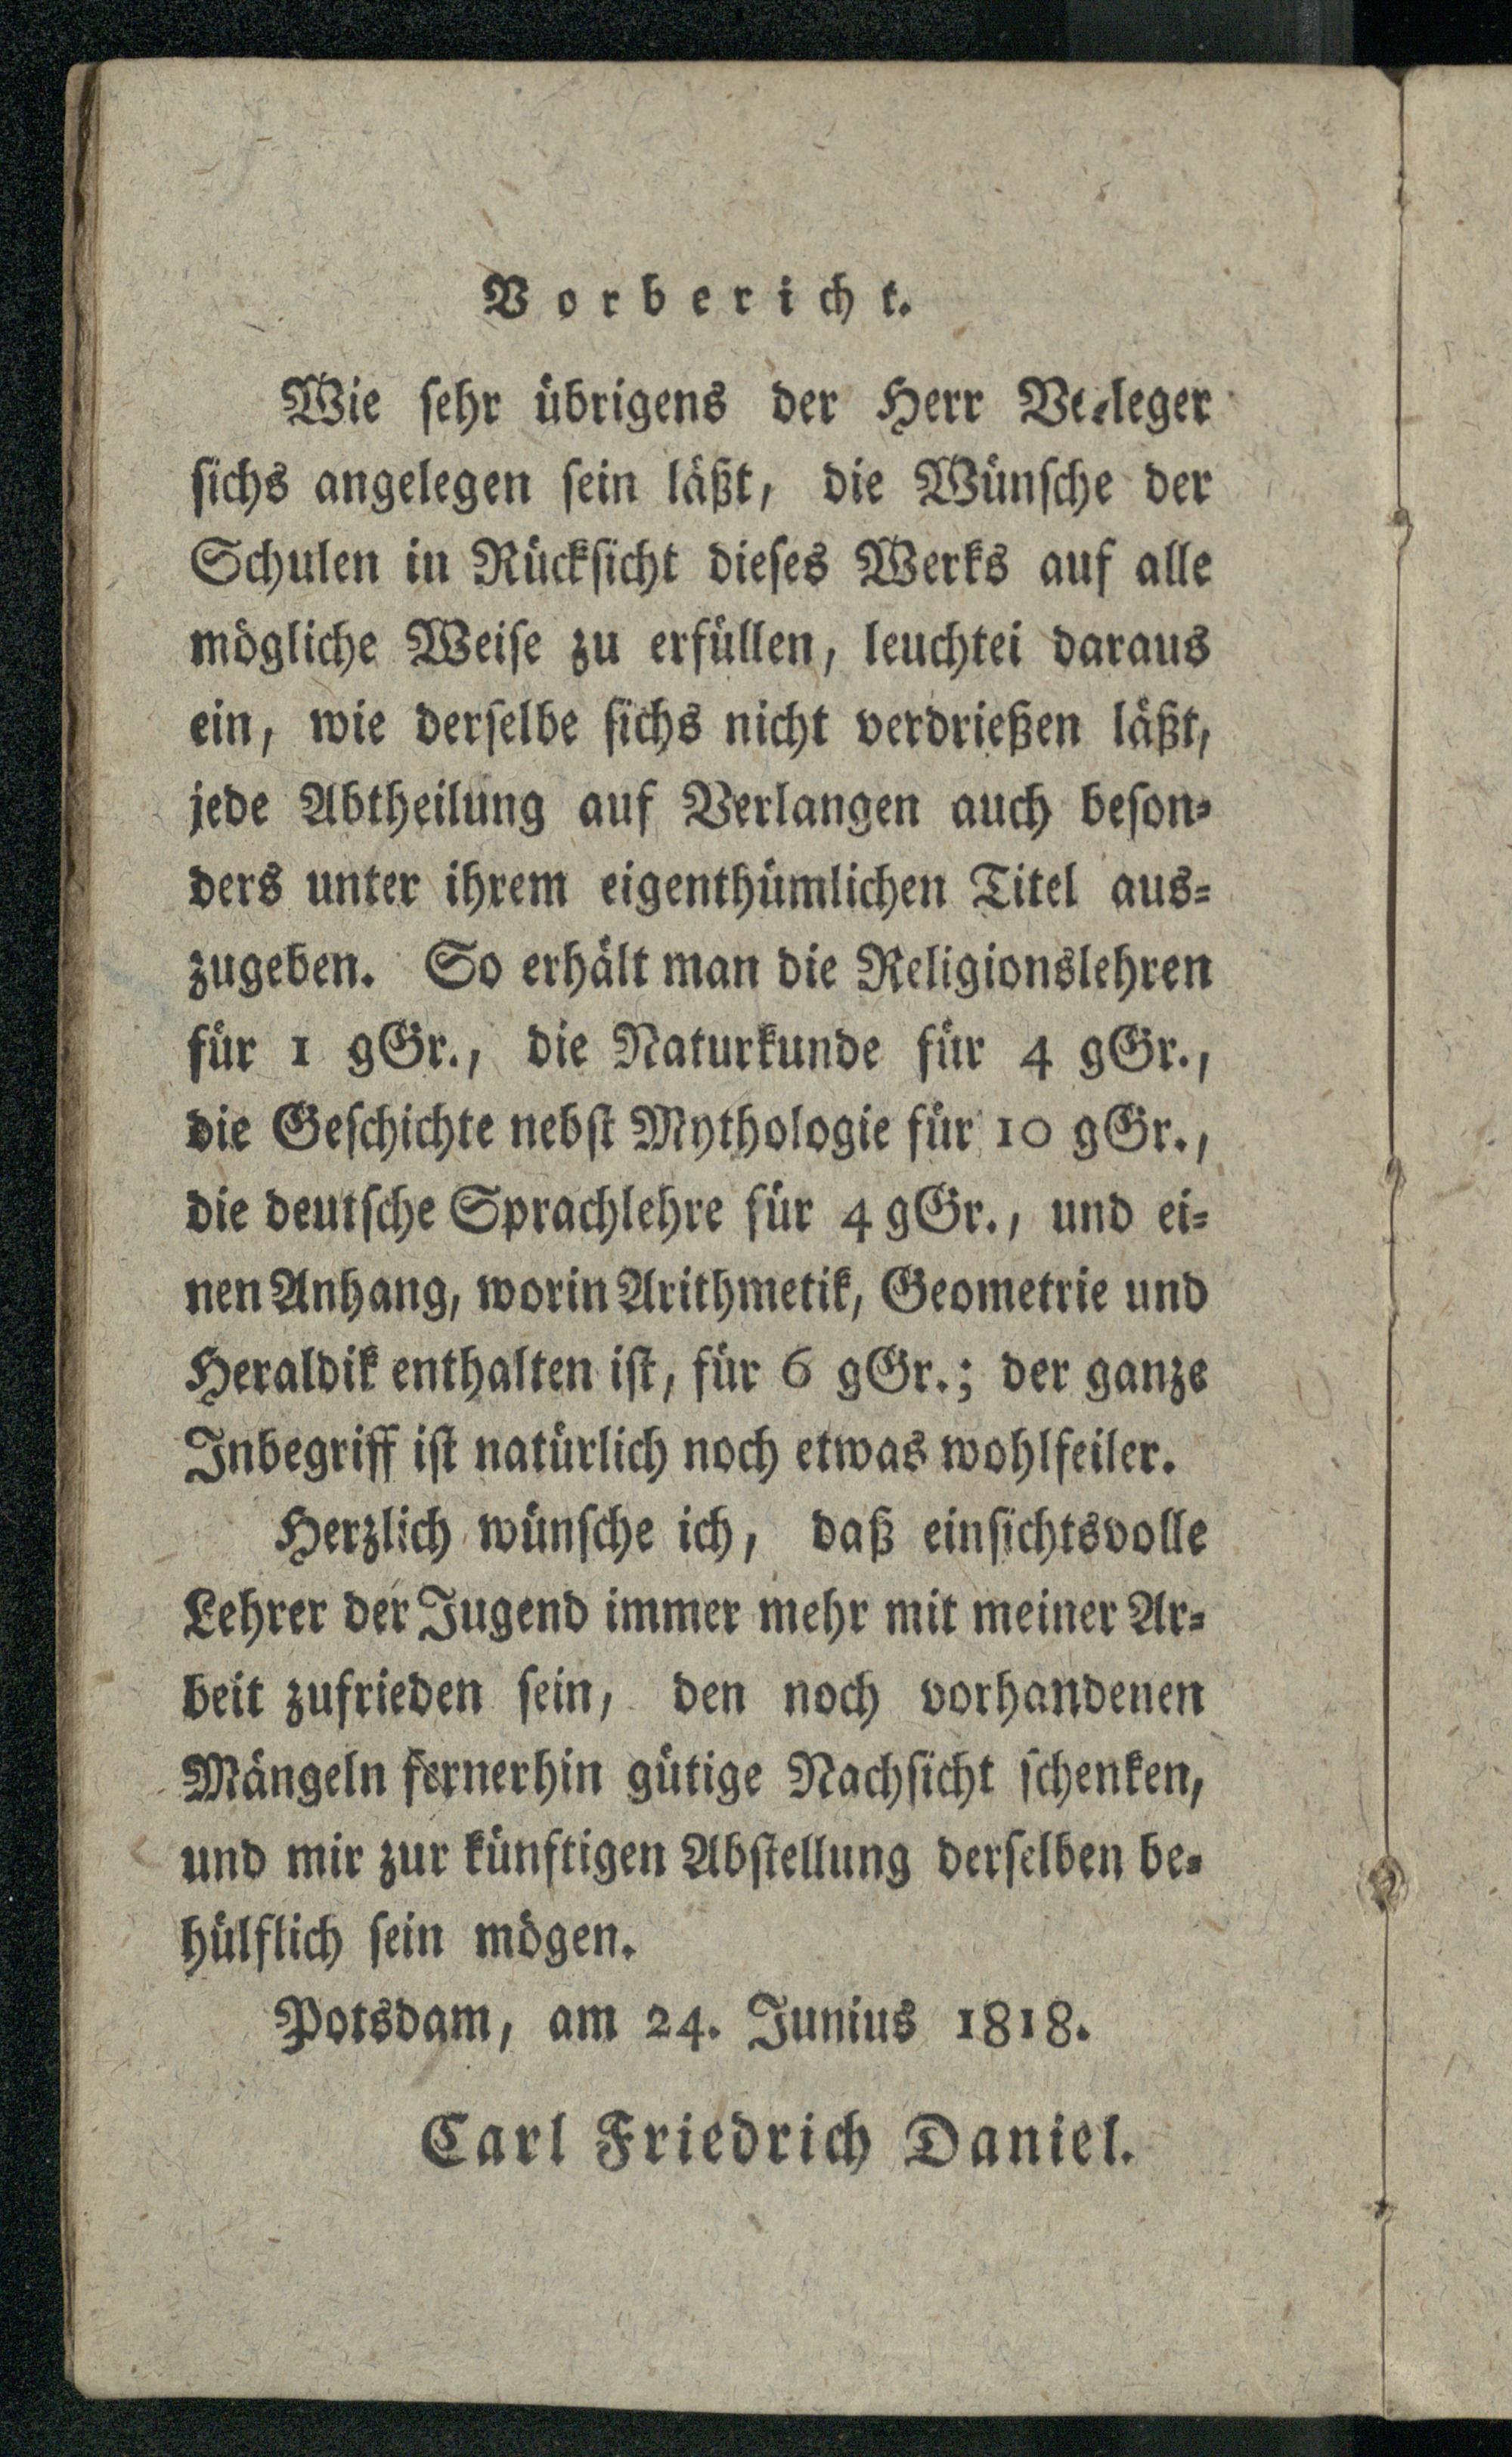 Vorbericht.
Wie ſehr übrigens der Herr Verleger
ſichs angelegen ſein läßt, die Wünſche der
Schulen in Rückſicht dieſes Werks auf alle
mögliche Weiſe zu erfüllen, leuchtei daraus
ein, wie derſelbe ſichs nicht verdrießen läßt,
jede Abtheilung auf Verlangen auch beſon-
ders unter ihrem eigenthümlichen Titel aus-
zugeben. So erhält man die Religionslehren
für 1 gGr., die Naturkunde für 4 gGr.,
die Geſchichte nebſt Mythologie für 10 gGr.,
die deutſche Sprachlehre für 4 gGr., und ei-
nen Anhang, worin Arithmetik, Geometrie und
Heraldik enthalten iſt, für 6 gGr.; der ganze
Inbegriff iſt natürlich noch etwas wohlfeiler.
Herzlich wünſche ich, daß einſichtsvolle
Lehrer der Jugend immer mehr mit meiner Ar-
beit zufrieden ſein, den noch vorhandenen
Mängeln fernerhin gütige Nachſicht ſchenken,
und mir zur künftigen Abſtellung derſelben be-
hülflich ſein mögen.
Potsdam, am 24. Junius 1818.
Carl Friedrich Daniel.